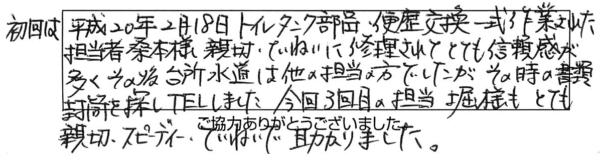 初回は 平成20年2月18日 トイレタンク部品、便座交換一式作業された
担当者桑本様 親切・ていねいに修理されてとても信頼感が
多く その後 台所水道は他の担当の方でしたが その時の書類
封筒を探しTELしました 今回3回目の担当 堀様も とても
ご協力ありがとうございました
親切、スピーディー・ていねいで助かりました。